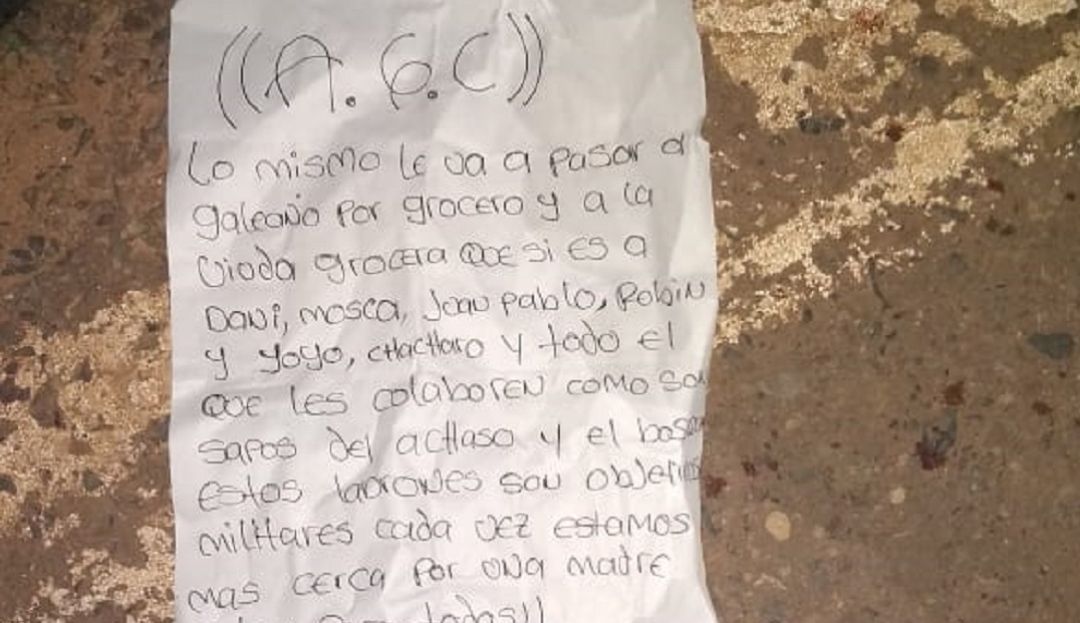 ((A.G.C))
Lo mismo le va a pasar a
galeano por grocero y a la
vioda grocera que si es a
Davi, mosca, Joau pablo, Robin
y yoyo, cHacHaro y todo el
que les colaboren como son
sapos del actlaso y el
estos ladrones son objetivos
militares cada vez estamos
mas cerca por una matre
todas!!